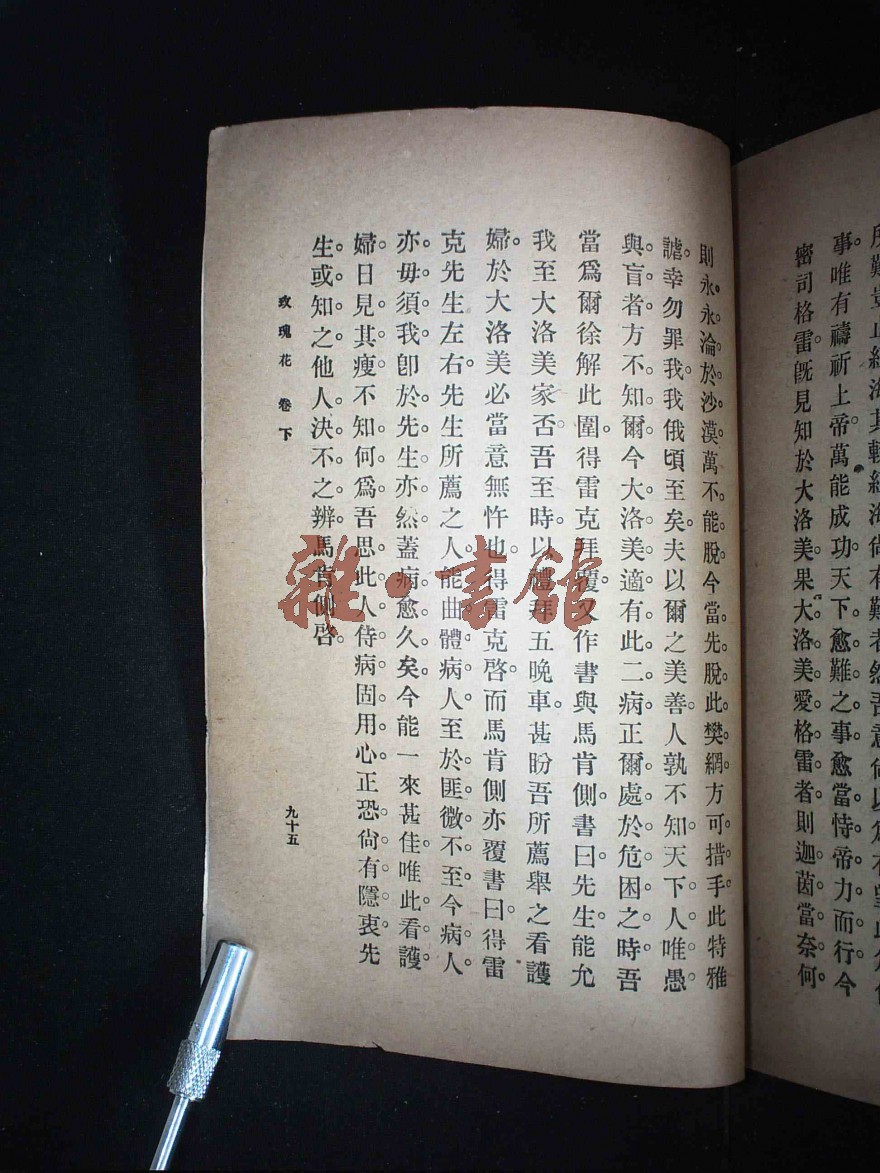 事。唯有禱祈上帝萬能成功天下愈難之事愈當恃帝力而行今
密司格雷既見知於大洛美果大洛美愛格雷者則迦茵當奈何
則永永淪於沙漠萬不能脫今當先脫此樊網方可措手此特雅
謔幸勿罪我我俄頃至矣夫以爾之美善人孰不知天下人唯愚
與盲者方不知爾今大洛美適有此二病正爾處於危困之時吾
當爲爾徐解此圍得雷克拜覆又作書與馬肯側書曰先生能允
我至大洛美家否吾至時以禮拜五晚車甚盼吾所薦舉之看護
婦於大洛美必當意無忤也得雷克啓而馬肯側亦覆書曰得雷
克先生左右先生所薦之人能曲體病人至於匪微不至今病人
亦毋須我卽於先生亦然蓋病愈久矣今能一來甚佳唯此看護
婦日見其瘦不知何爲吾思此人侍病固用心正恐尙有隱衷先
生或知之他人決不之辨馬肯側啓
玫瑰花 卷下
九十五
雜·書館